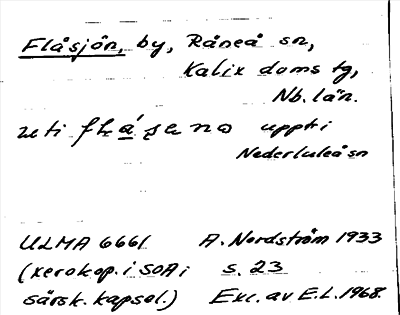 Flåsjön, by, Råneå sn,
Kalix doms tg,
Nb. län.
uti upptri
Nederluleå sn
ULMA 6661. A. Nordström 1933
(xerokop. i SOA i s. 23
särsk. kapsel.) Exc. av E.L. 1968.